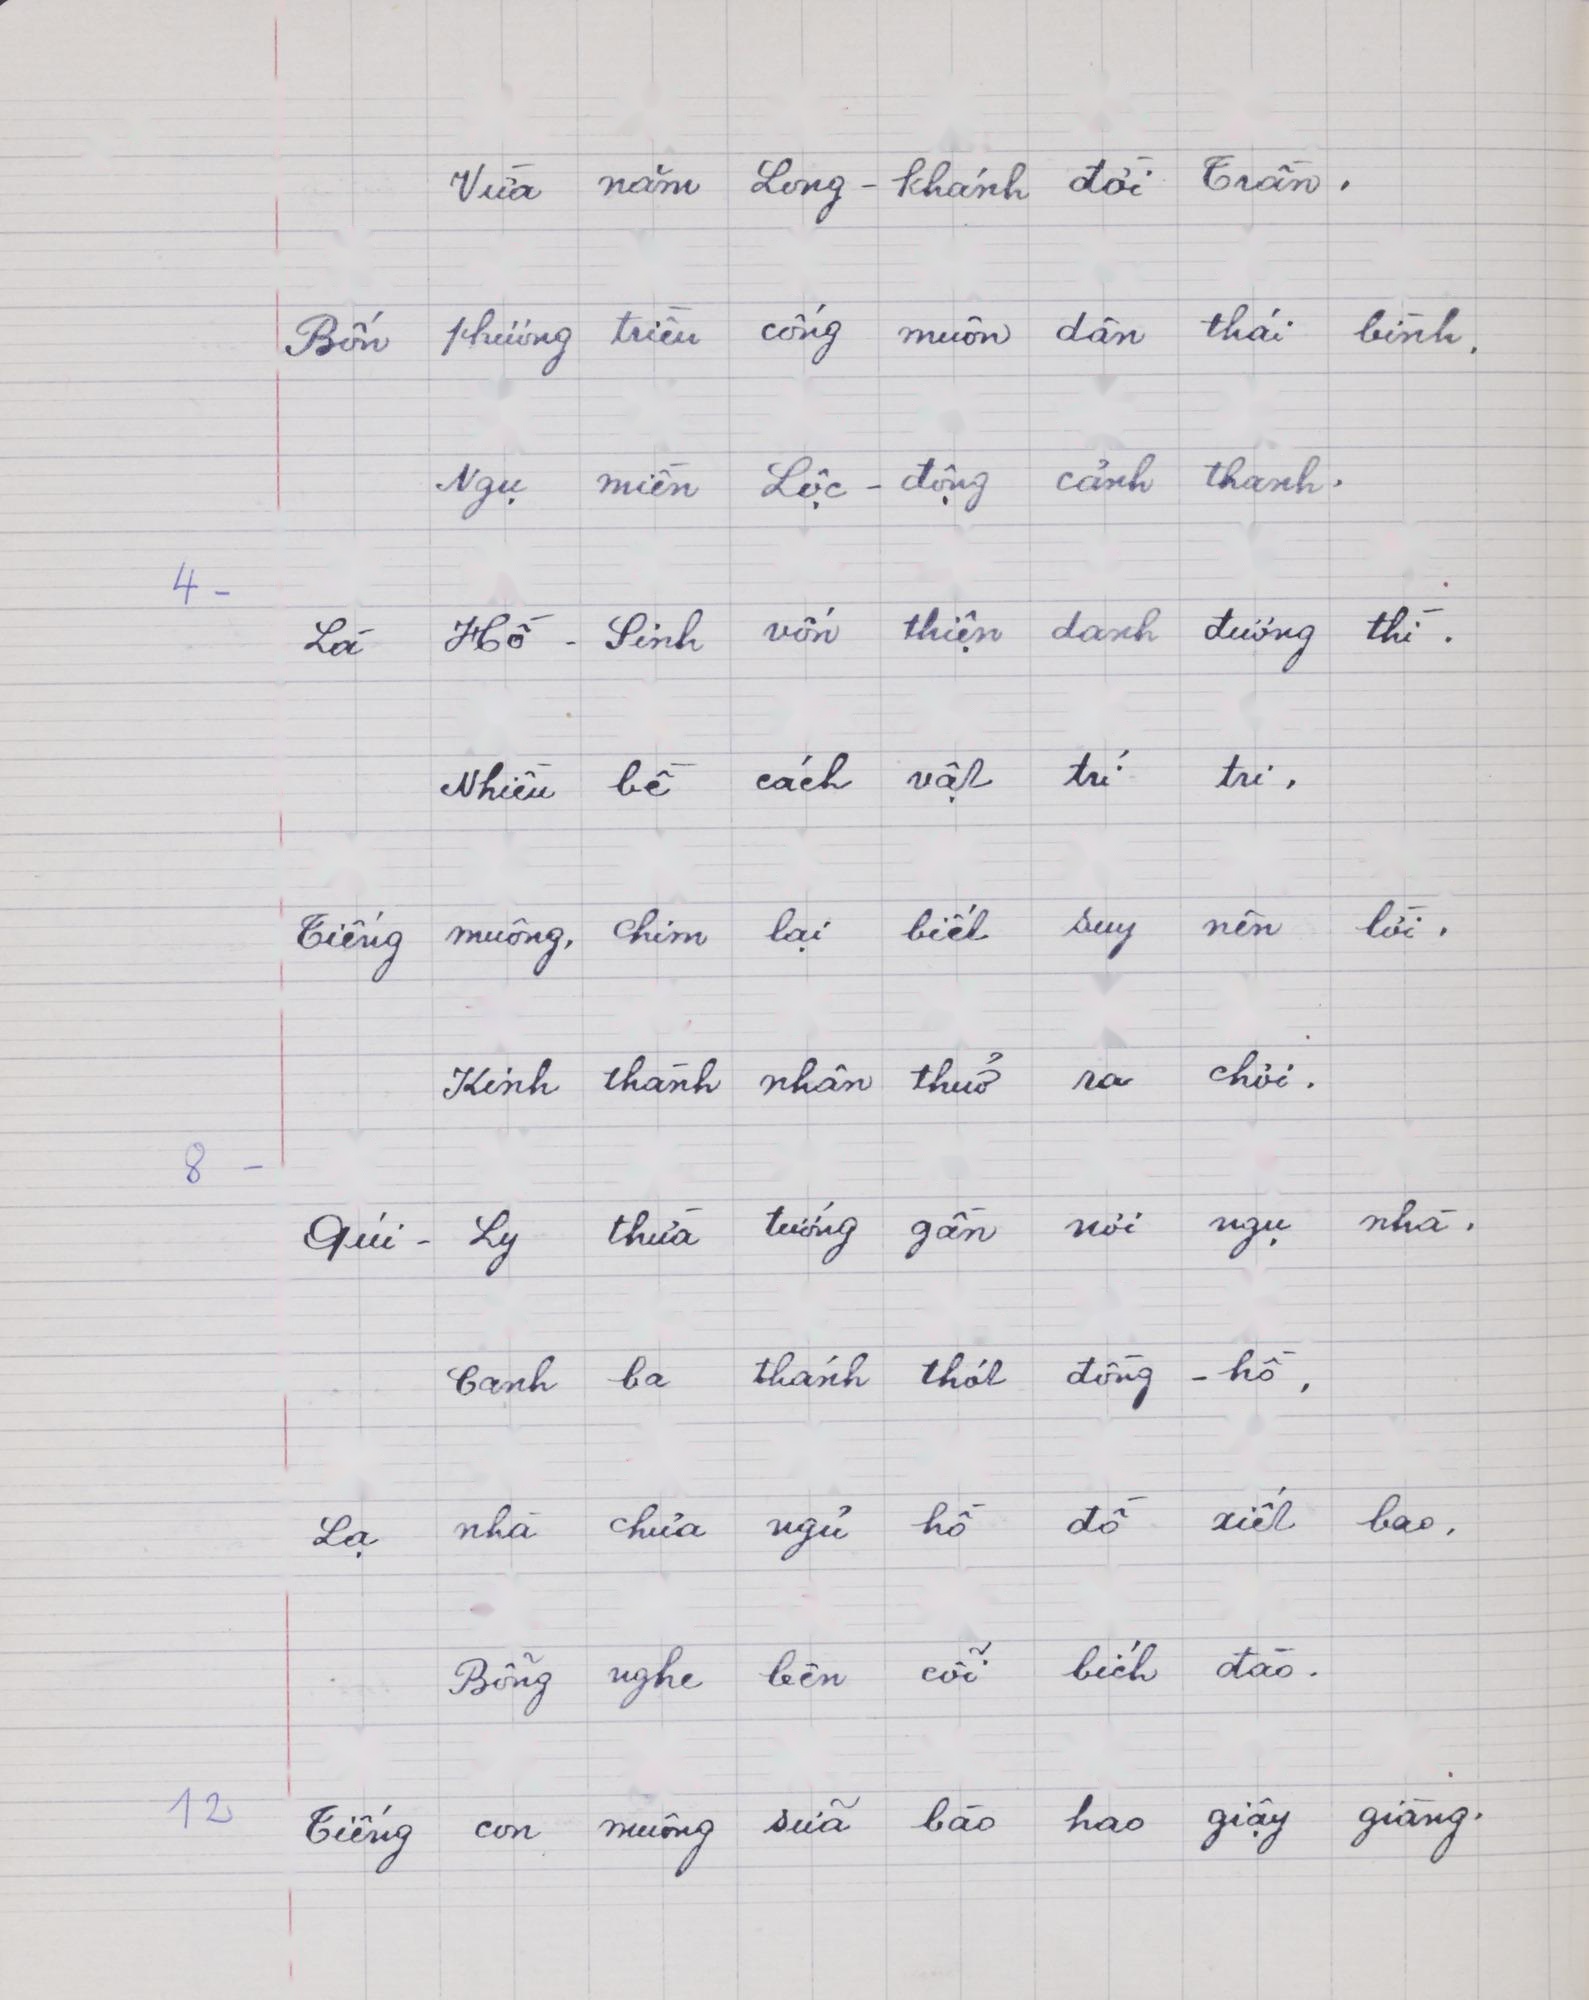 Vừa năm Long-khánh đời Trần.
Bốn phương triều cống muôn dân thái bình.
Ngụ miền Lộc-động cảnh thanh.
4-
Là Hồ-Sinh vốn thiện danh đương thì.
Nhiều bề cách vật trí tri.
Tiếng muông, chim lại biết suy nên lời.
Kinh thành nhân thuở ra chơi.
8 -
Quí-Ly thừa tướng gần nơi ngụ nhà.
Canh ba thánh thót đồng-hồ,
Lạ nhà chưa ngủ hồ đồ xiết bao.
Bỗng nghe bên cõi bích đào.
12
Tiếng con muông sũa bào hao giậy giàng.